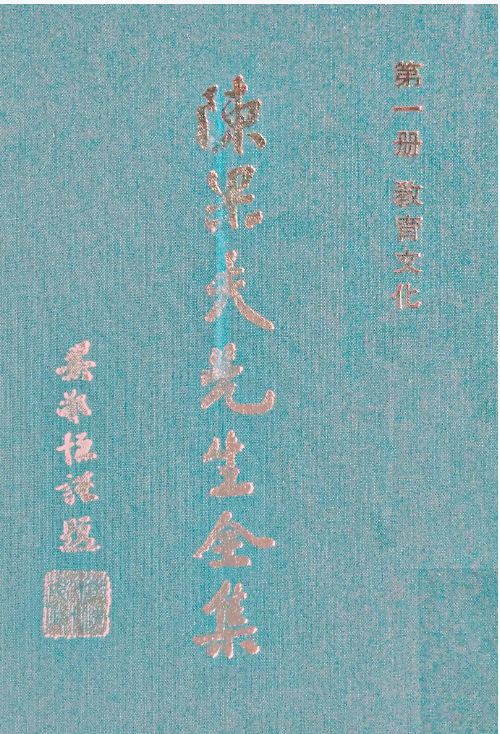 第一册 教育文化
陳果夫先生全集
吳敬恒謹題